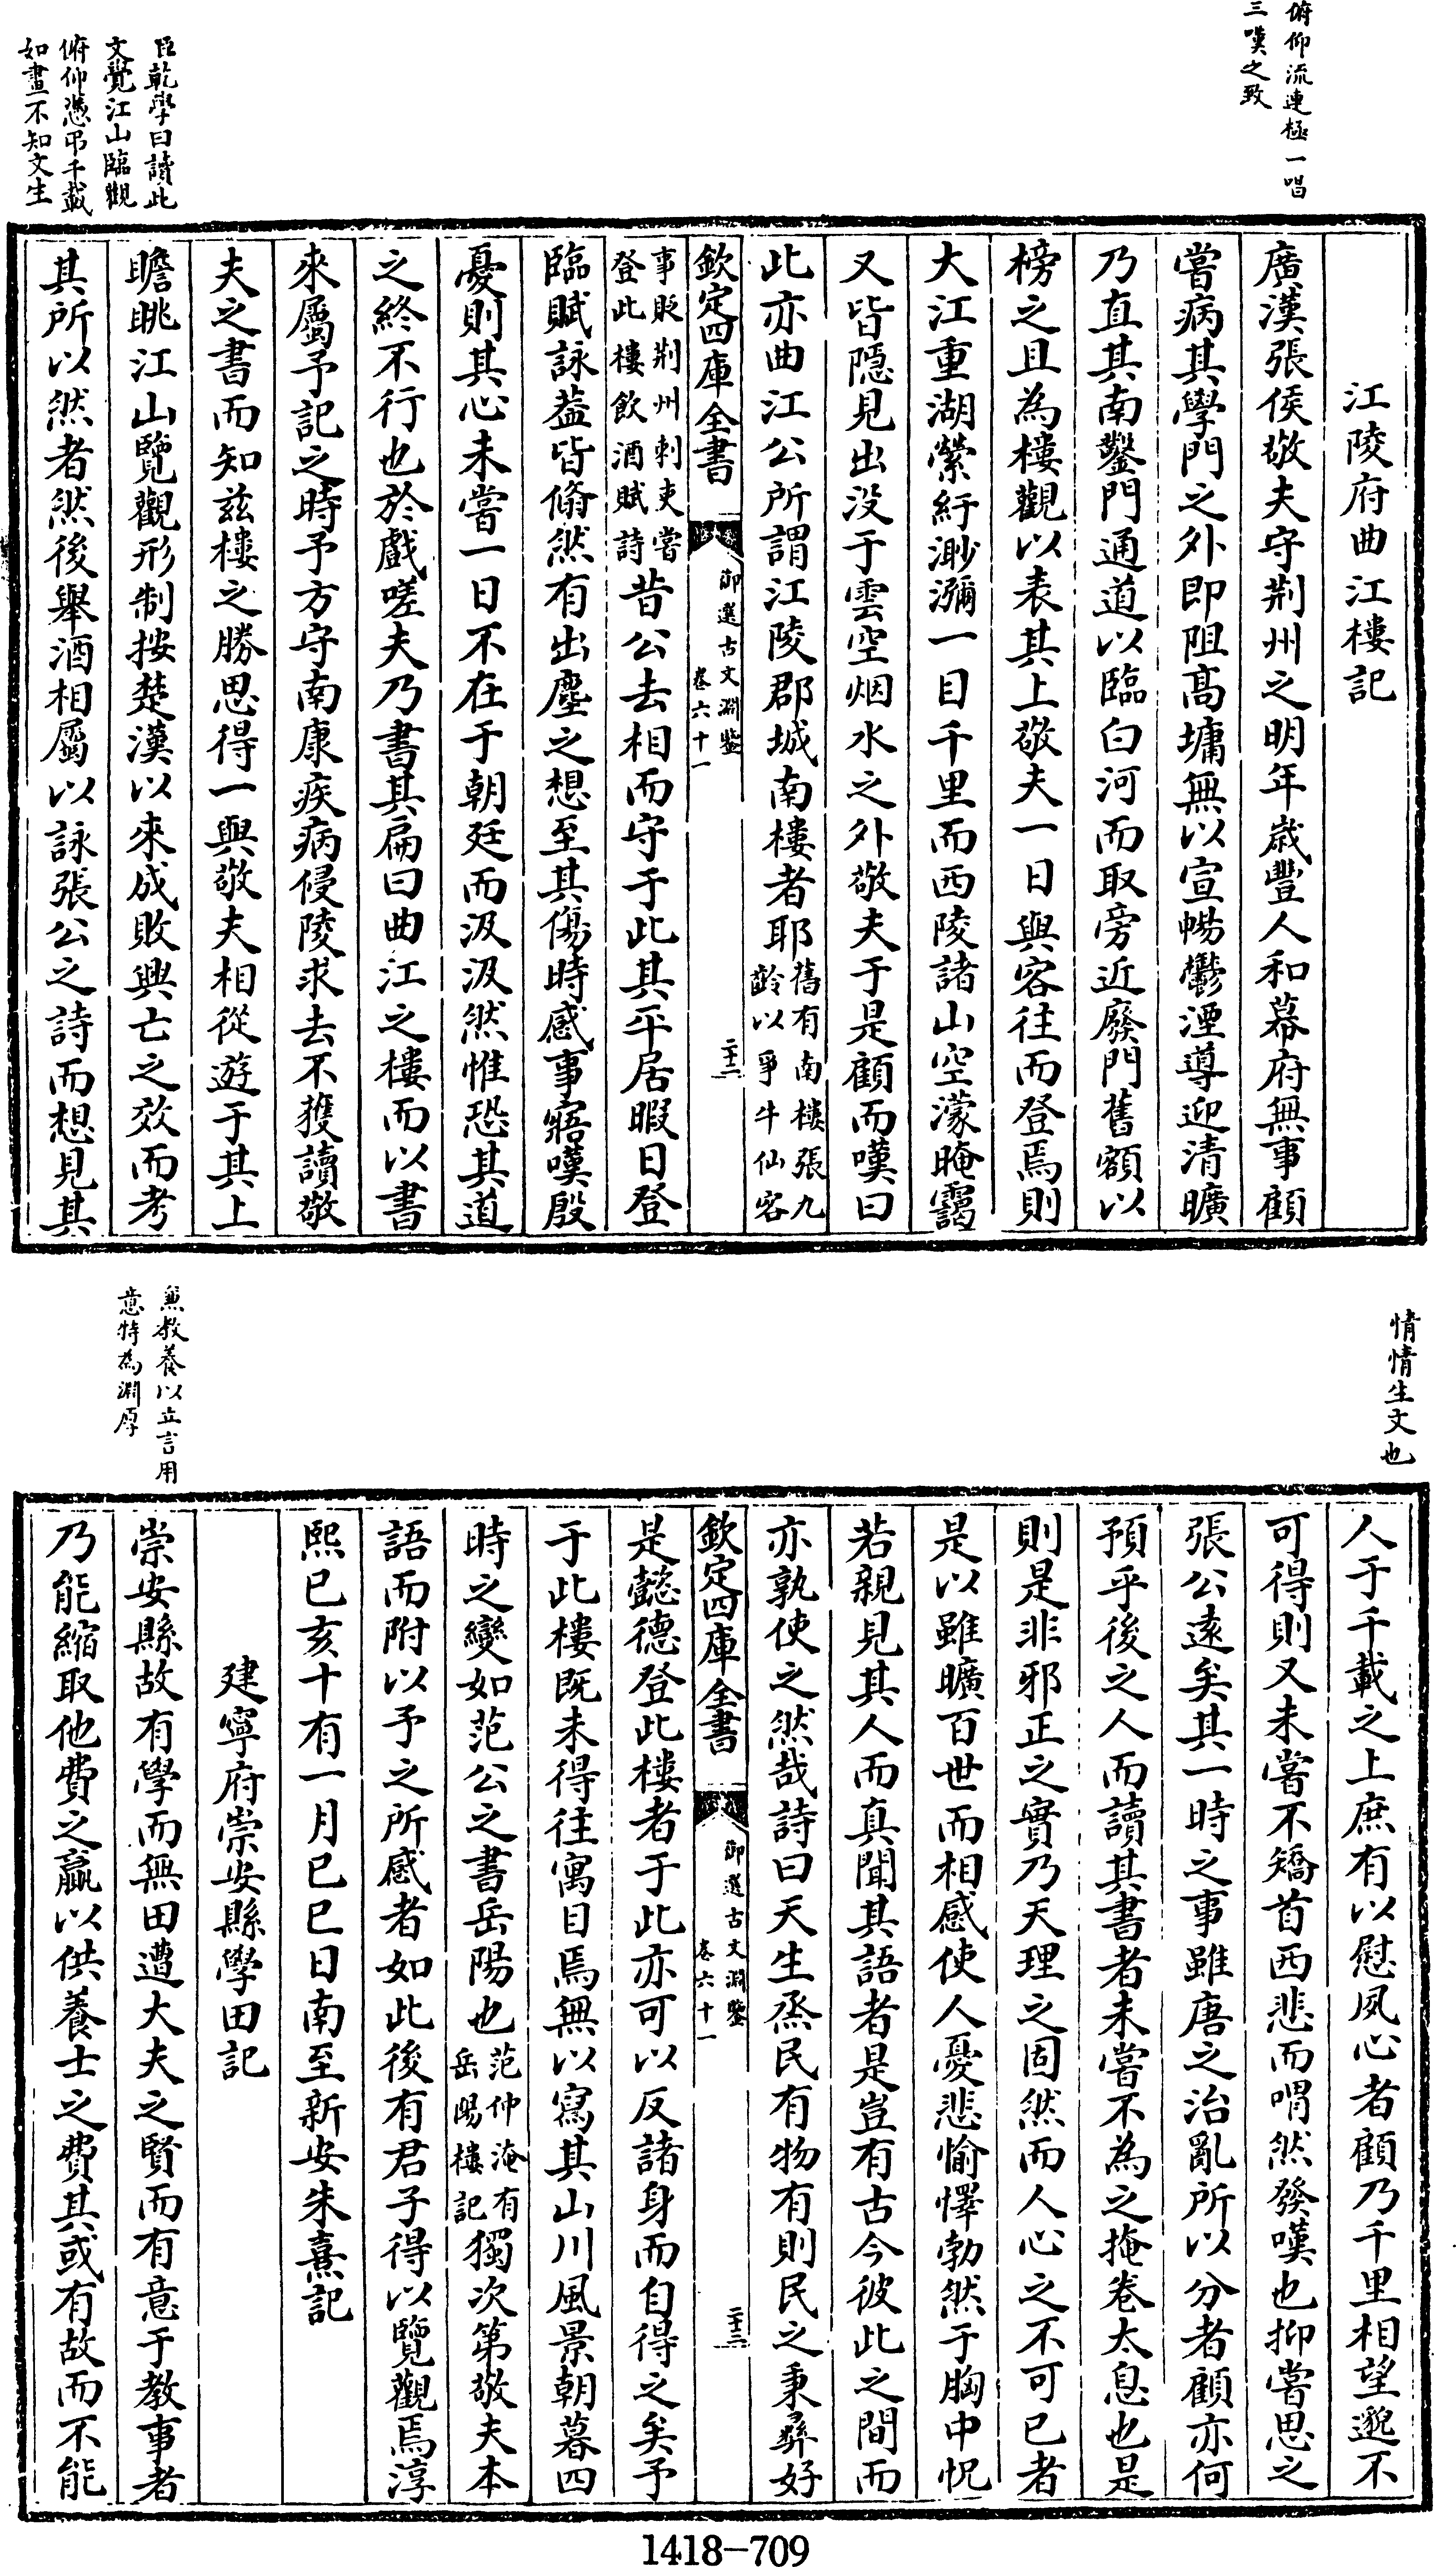 俯仰流連極一唱
三嘆之致
江陵府曲江樓記
廣漢張侯敬夫守荆州之明年歲豐人和幕府無事顧
嘗病其學門之外即阻髙墉無以宣暢鬱湮導迎清曠
乃直其南鑿門通道以臨白河而取旁近廢門舊額以
榜之且為樓觀以表其上敬夫一日與客往而登焉則
大江重湖縈紆渺瀰一目千里而西陵諸山空濛晻靄
又皆隱見出没于雲空烟水之外敬夫于是顧而嘆曰
此亦曲江公所謂江陵郡城南樓者耶舊有南樓張九
齡以爭牛仙客
欽定四庫全書
御選古文淵鑒
卷六十一
二十二
事貶荆州刺吏嘗
登此樓飲酒賦詩昔公去相而守于此其平居暇日登
臨賦詠葢皆翛然有出塵之想至其傷時感事寤嘆殷
憂則其心未嘗一日不在于朝廷而汲汲然惟恐其道
之終不行也於戲嗟夫乃書其扁曰曲江之樓而以書
來屬予記之時予方守南康疾病侵陵求去不獲讀敬
夫之書而知兹樓之勝思得一與敬夫相從遊于其上
瞻眺江山覽觀形制按楚漢以來成敗興亡之效而考
其所以然者然後舉酒相屬以詠張公之詩而想見其
臣乾學曰讀此
文覺江山臨觀
俯仰憑弔千載
如畫不知文生
情情生文也
人于千載之上庶有以慰夙心者顧乃千里相望邈不
可得則又未嘗不矯首西悲而喟然發嘆也抑嘗思之
張公遠矣其一時之事雖唐之治亂所以分者顧亦何
預乎後之人而讀其書者未嘗不為之掩卷太息也是
則是非邪正之實乃天理之固然而人心之不可已者
是以雖曠百世而相感使人憂悲愉懌勃然于胸中怳
若親見其人而真聞其語者是豈有古今彼此之間而
亦孰使之然哉詩曰天生烝民有物有則民之秉彞好
欽定四庫全書
御選古文淵鑒
卷六十一
二十三
是懿德登此樓者于此亦可以反諸身而自得之矣予
于此樓既未得往寓目焉無以寫其山川風景朝暮四
時之變如范公之書岳陽也范仲淹有
岳陽樓記獨次第敬夫本
語而附以予之所感者如此後有君子得以覽觀焉淳
熙己亥十有一月己巳日南至新安朱熹記
建寧府崇安縣學田記
崇安縣故有學而無田遭大夫之賢而有意于教事者
乃能縮取他費之贏以供養士之費其或有故而不能
無教養以立言用
意特為淵厚
1418-709